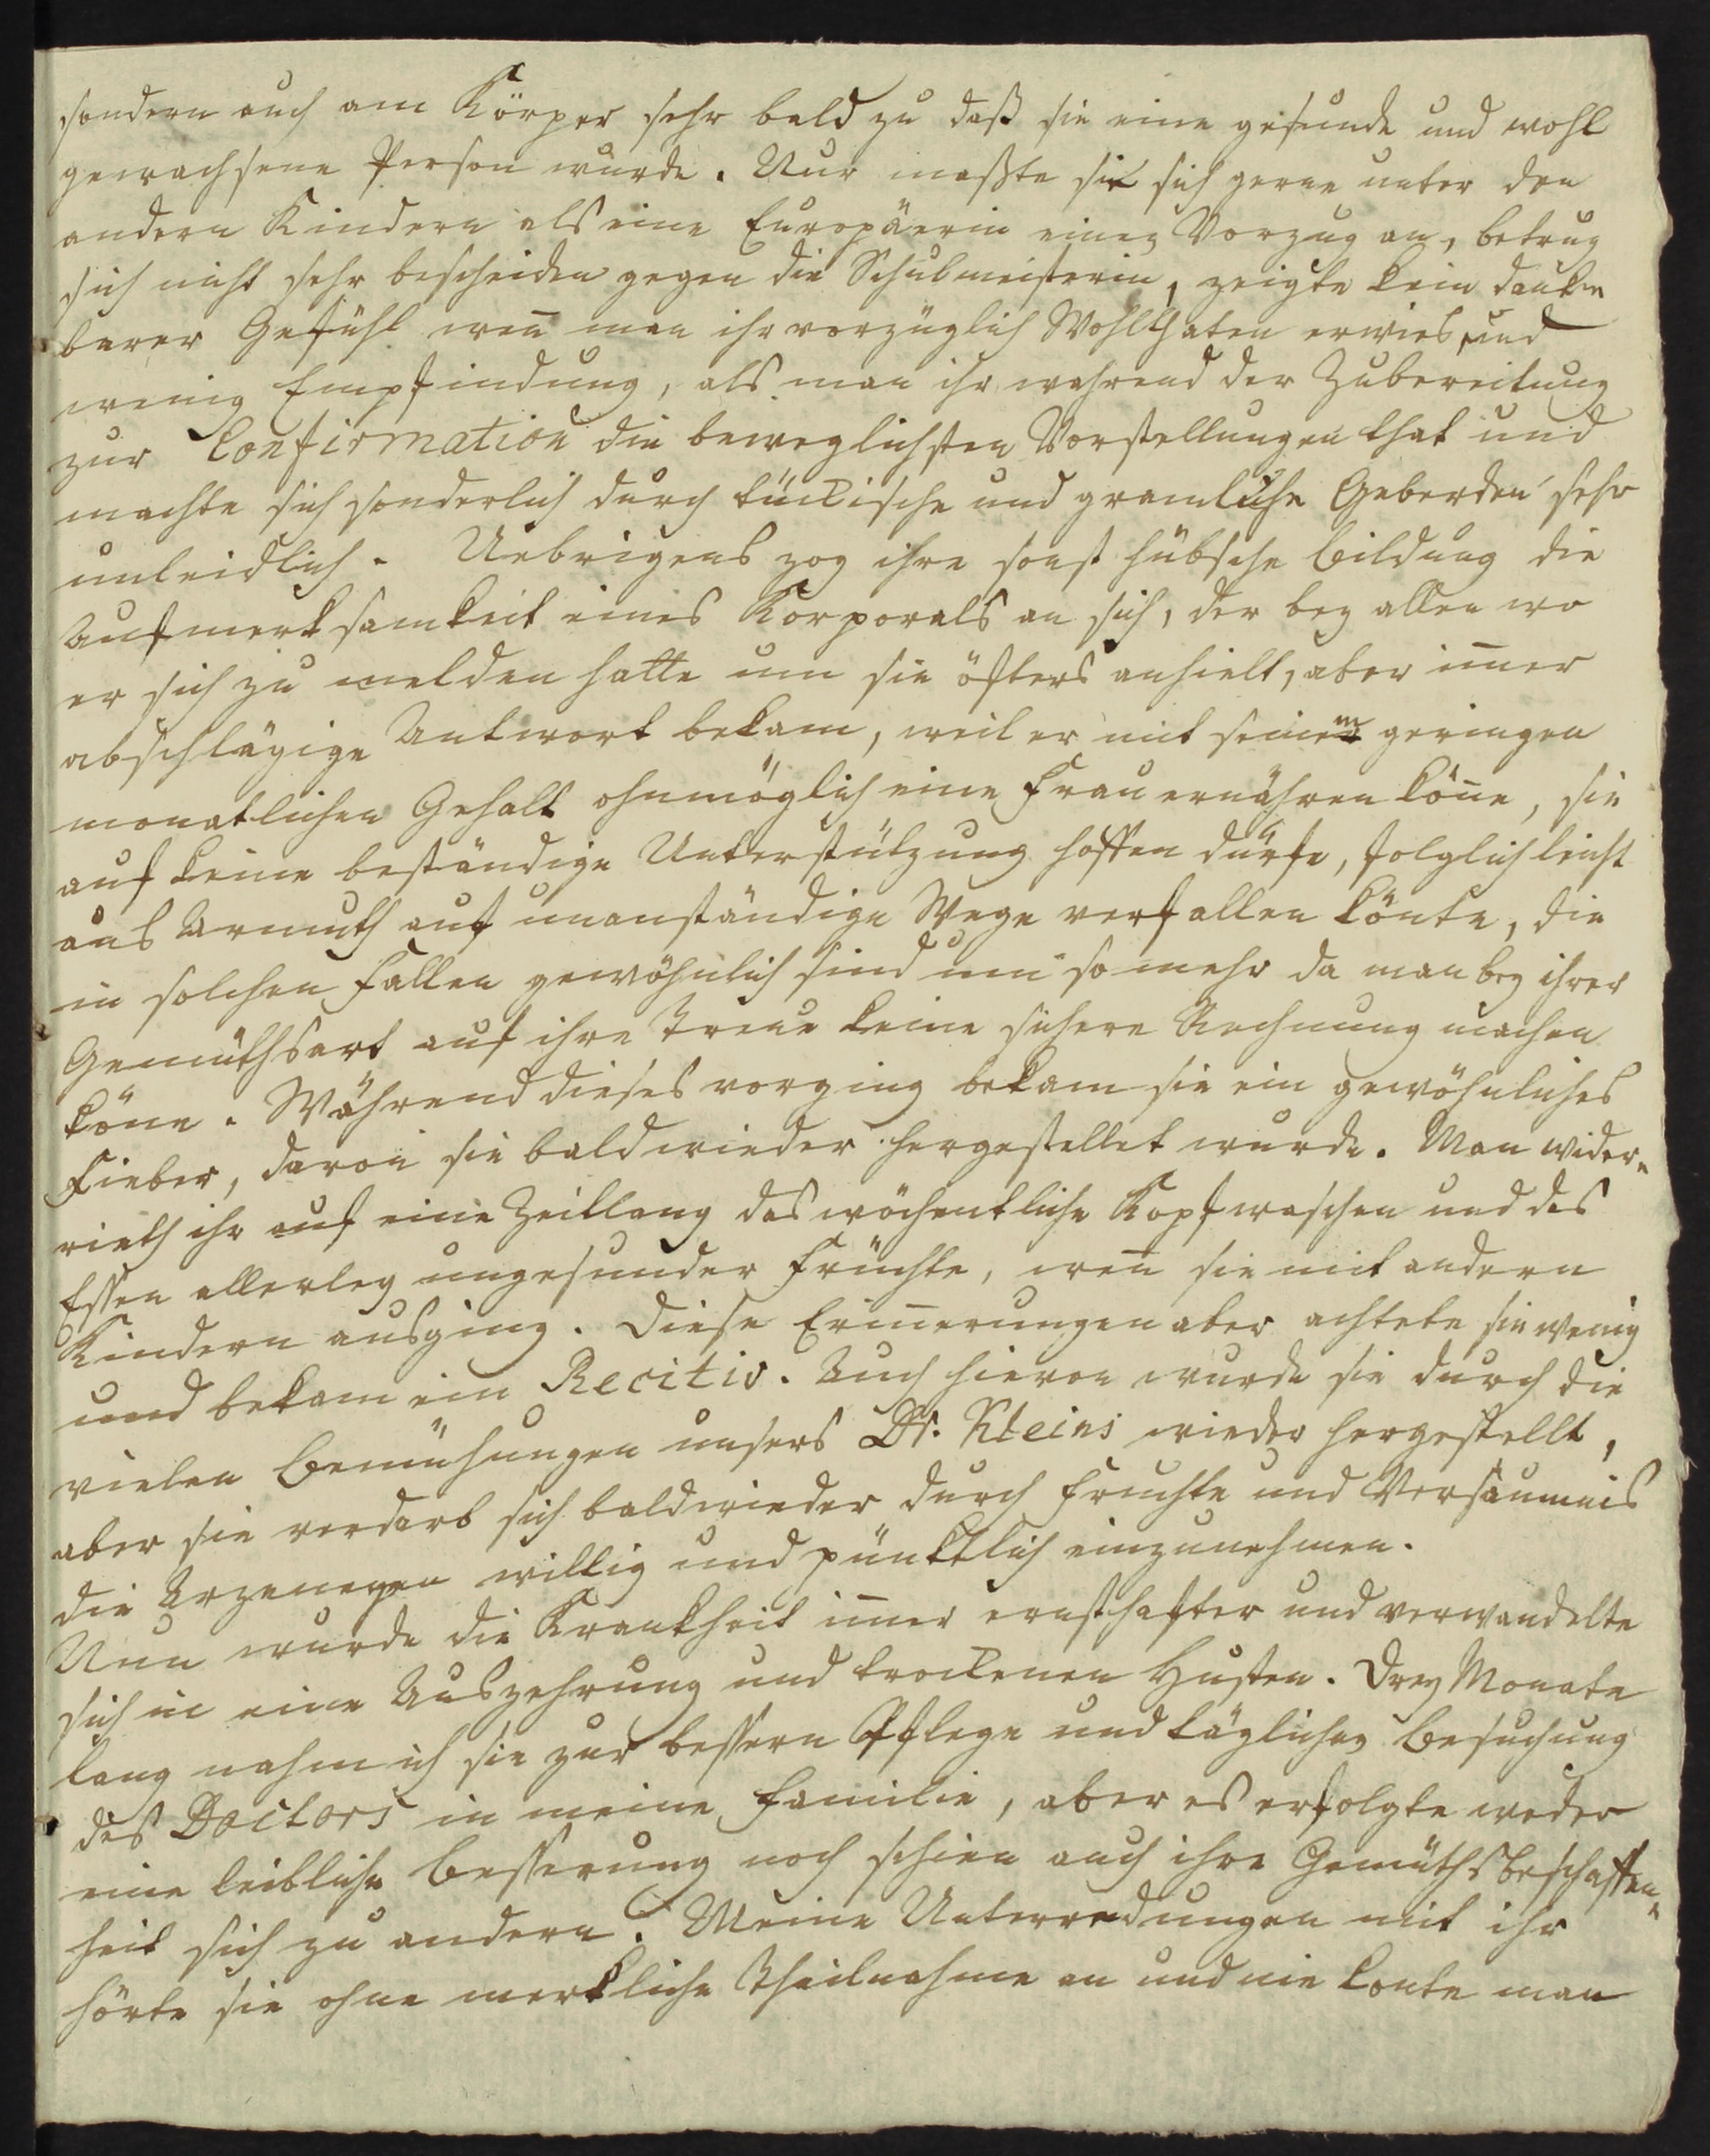 sondern auch am Körper sehr bald zu daß sie eine gesunde und wohl
gewachsene Person wurde. Nur maßte sie sich gerne unter den
andern Kindern als eine Europäerin einen Vorzug an, betrug
sich nicht sehr bescheiden gegen die Schulmeisterin, zeigte kein dank-
barer Gefühl wen̅ man ihr vorzüglich Wohlthaten erwies und
wenig Empfindung, als man ihr wahrend der Zubereitung
zur Confirmation die beweglichsten Vorstellungen that und
machte sich sonderlich durch tückische und gramliche Geberden sehr
unleidlich. Uebrigens zog ihre sonst hübsche Bildung die
Aufmerksamkeit eines Korporals an sich, der bey allen wo
er sich zu melden hatte um sie öfters anhielt, aber im̅er
abschlägige Antwort bekam, weil er mit seinem geringen
monatlichen Gehalt ohnmöglich eine Frau ernähren kön̅e, sie
auf keine beständige Unterstützung hoffen dürfe, folglich leicht
aus Armuth auf unanständige Wege verfallen könte, die
in solchen Fallen gewöhnlich sind um so mehr da man bey ihrer
Gemüthsart auf ihre Treue keine sichere Rechnung machen
köne. Während dieses vorging bekam sie ein gewöhnliches
Fieber, davon sie bald wieder hergestellet wurde. Man wider-
rieth ihr auf eine Zeitlang das wöchentliche Kopfwaschen und das
Essen allerley ungesunder Früchte, wen̅ sie mit andern
Kindern ausging. Diese Erin̅erungen aber achtete sie wenig
und bekam ein Recitiv. Auch hievon wurde sie durch die
vielen Bemühungen unsers Dr. Kleins wieder hergestellt,
aber sie verdarb sich bald wieder durch Fruchte und Versäumnis
die Arzeneyen willig und pünktlich einzunehmen.
Nun wurde die Krankheit im̅er ernsthafter und verwandelte
sich in eine Auszehrung und trockenen Husten. Drey Monate
lang nahm ich sie zur bessern Pflege und täglicher Besuchung
des Doctors in meine Familie, aber es erfolgte weder
eine leibliche Besserung noch schien auch ihre Gemüthsbeschaffen-
heit sich zu andern. Meine Unterredungen mit ihr
hörte sie ohne merkliche Theilnahme an und nie konte man